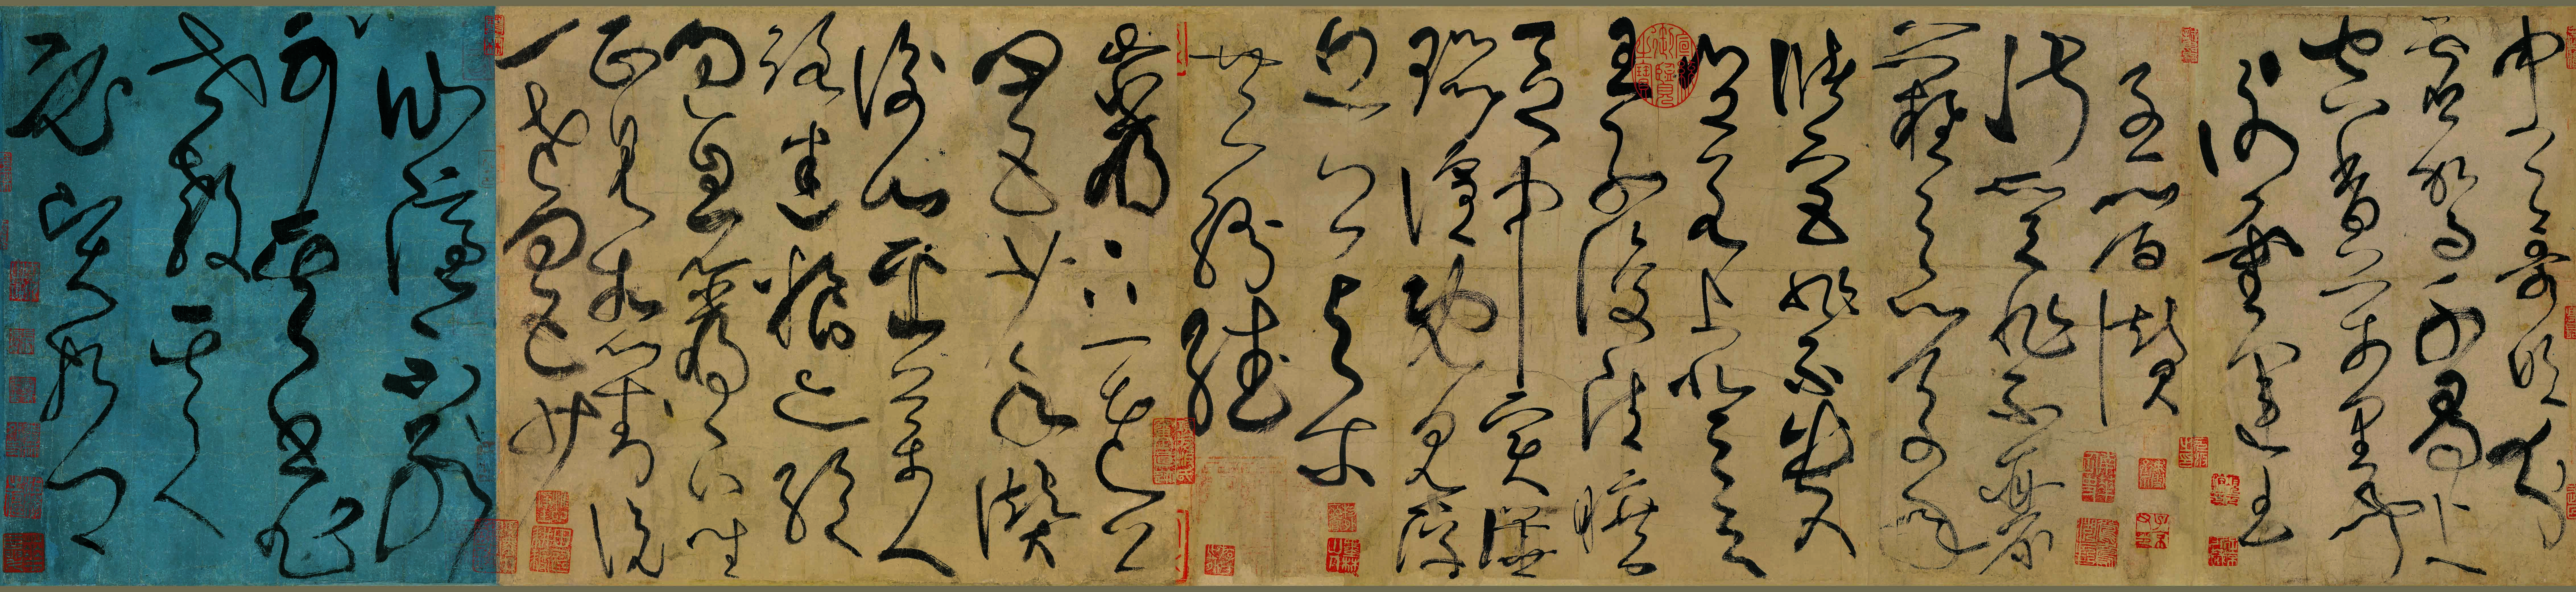 中天哥吹分
虛駕千尋上
空香萬里聞
謝靈運王
子晉贊
淑質非不麗
難之以萬年
儲宮非不貴
豈若上登天
王子復清曠
區中實譁
囂喧既見浮
丘公與爾
共紛繙
巖下一老公
四五少年贊
衡山採藥人
路迷糧亦絕
過息巖下坐
正見相對說
一老四五少
仙隱不別
可其書非
世教其人
必賢哲